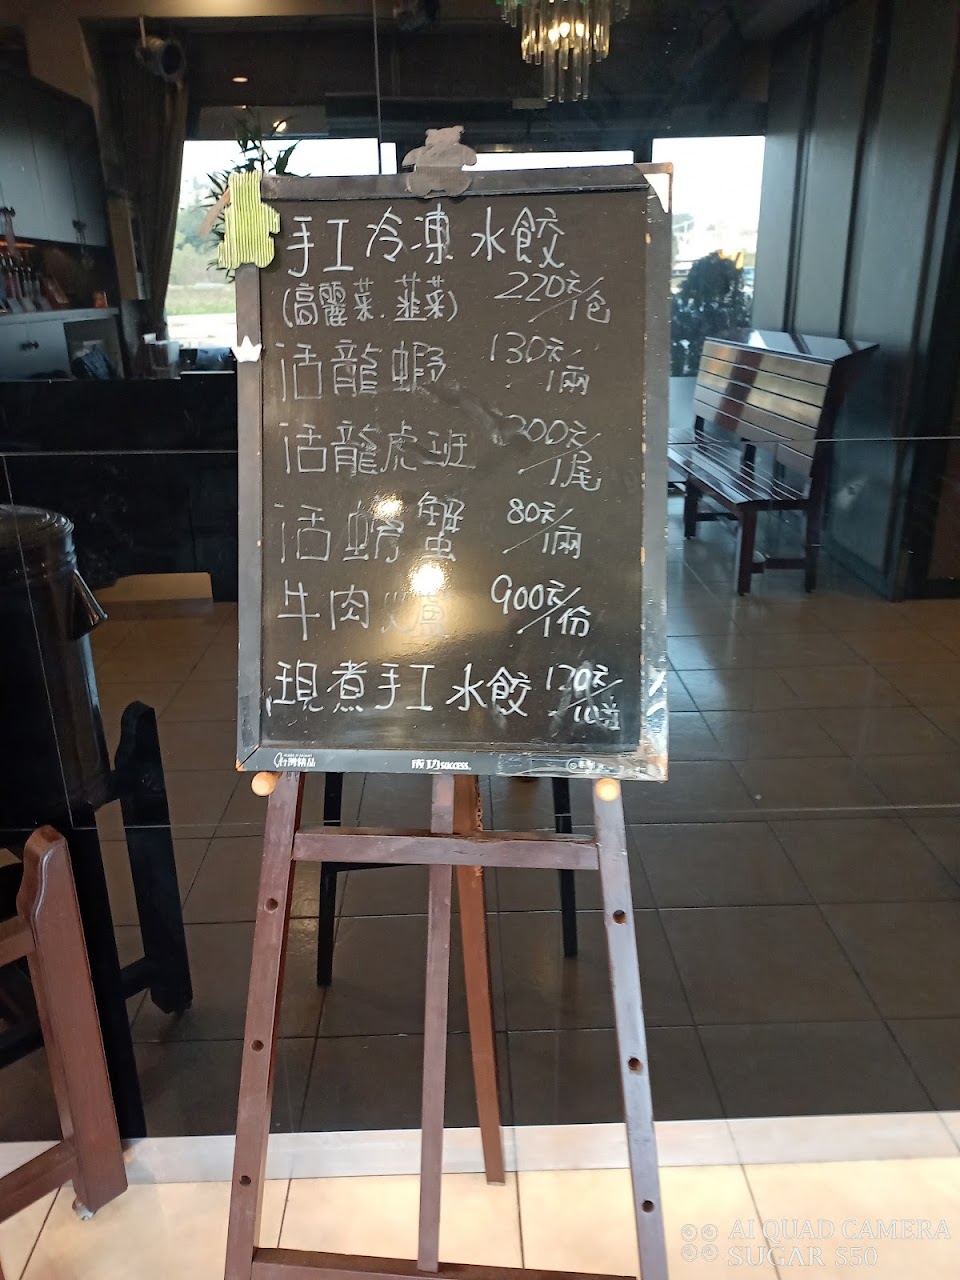 手工冷凍 水餃
(高麗菜.韮菜) 220元/包
活龍蝦 130元/兩
活龍虎班 300元/1尾
活螃蟹 80元/兩
牛肉爐 900元/1份
現煮手工水餃
台灣精品
成功 success.
AI QUAD CAMERA
SUGAR S50